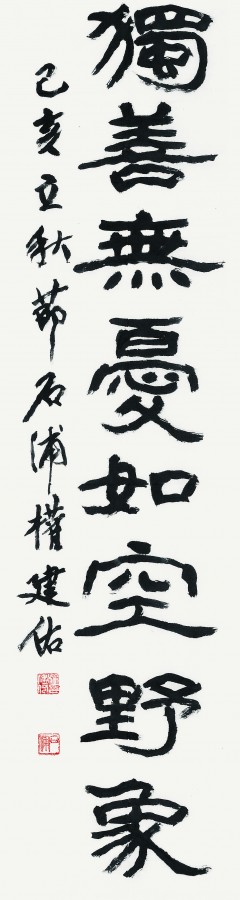 獨善無憂如空野象
己亥立秋節石浦權建佑